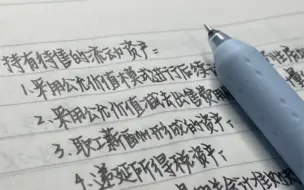 持有待售的流动资产：
1.采用公允价值模式进行后续
2.采用公允价值减去出售费用
3.职工薪酬形成的资产；
4.递延所得税资产；